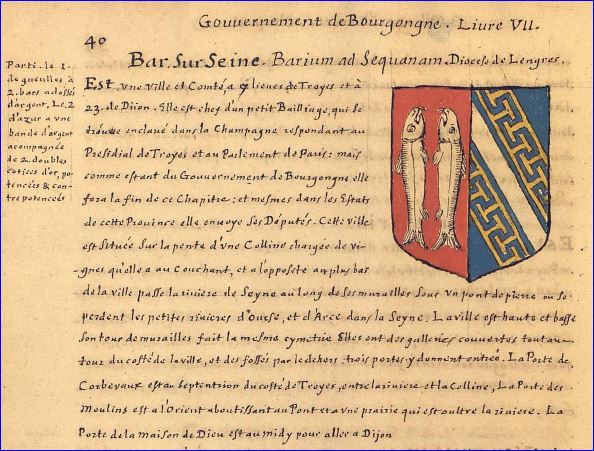 Gouuernement de Bourgongne. Liure VII.
40
Bar. Sur Seine. Barium ad Sequanam. Diocese de Lengres.
Parti. le 1.
de gueulles à
2. bars adossés
d'argent. Le 2
d'azur a vne
bande d'argent
acompagnée
de 2. doubles
cotices d'or, po,
tencées & con,
trepotencées
Est vne ville et Comté, a 7 lieues de Troyes et à
23. de Dijon. Elle est chef d'un petit Bailliage, qui se
trouue enclaué dans la Champagne respondant au
Presidial de Troyes et au Parlement de Paris: mais
comme estant du Gouuernement de Bourgongne elle
fera la fin de ce Chapitre: et mesmes dans les Estats
de cette Prouince elle enuoye ses Députés. Cette ville
est située sur la pente d'vne Colline chargée de vi-
gnes qu'elle a au Couchant, et a l'opposite au plus bas
de la ville passe la riuiere de Seyne au long de ses murailles sous vn pont de pierre ou se
perdent les petites riuieres d'Ourse, et d'Arce dans la Seyne. La ville est haute et basse
son tour de murailles fait la mesme symetrie. Elles ont des galleries couuertes tout au
tour du costé de la ville, et des fossés par le dehors; trois portes y donnent entrée. La Porte de
Corbevaux est au Septentrion du costé de Troyes, entre la riuiere et la Colline, La Porte des
Moulins est a l'Orient aboutissant au Pont et a vne prairie qui est oultre la riuiere. La
Porte de la maison de Dieu est au midy pour aller a Dijon